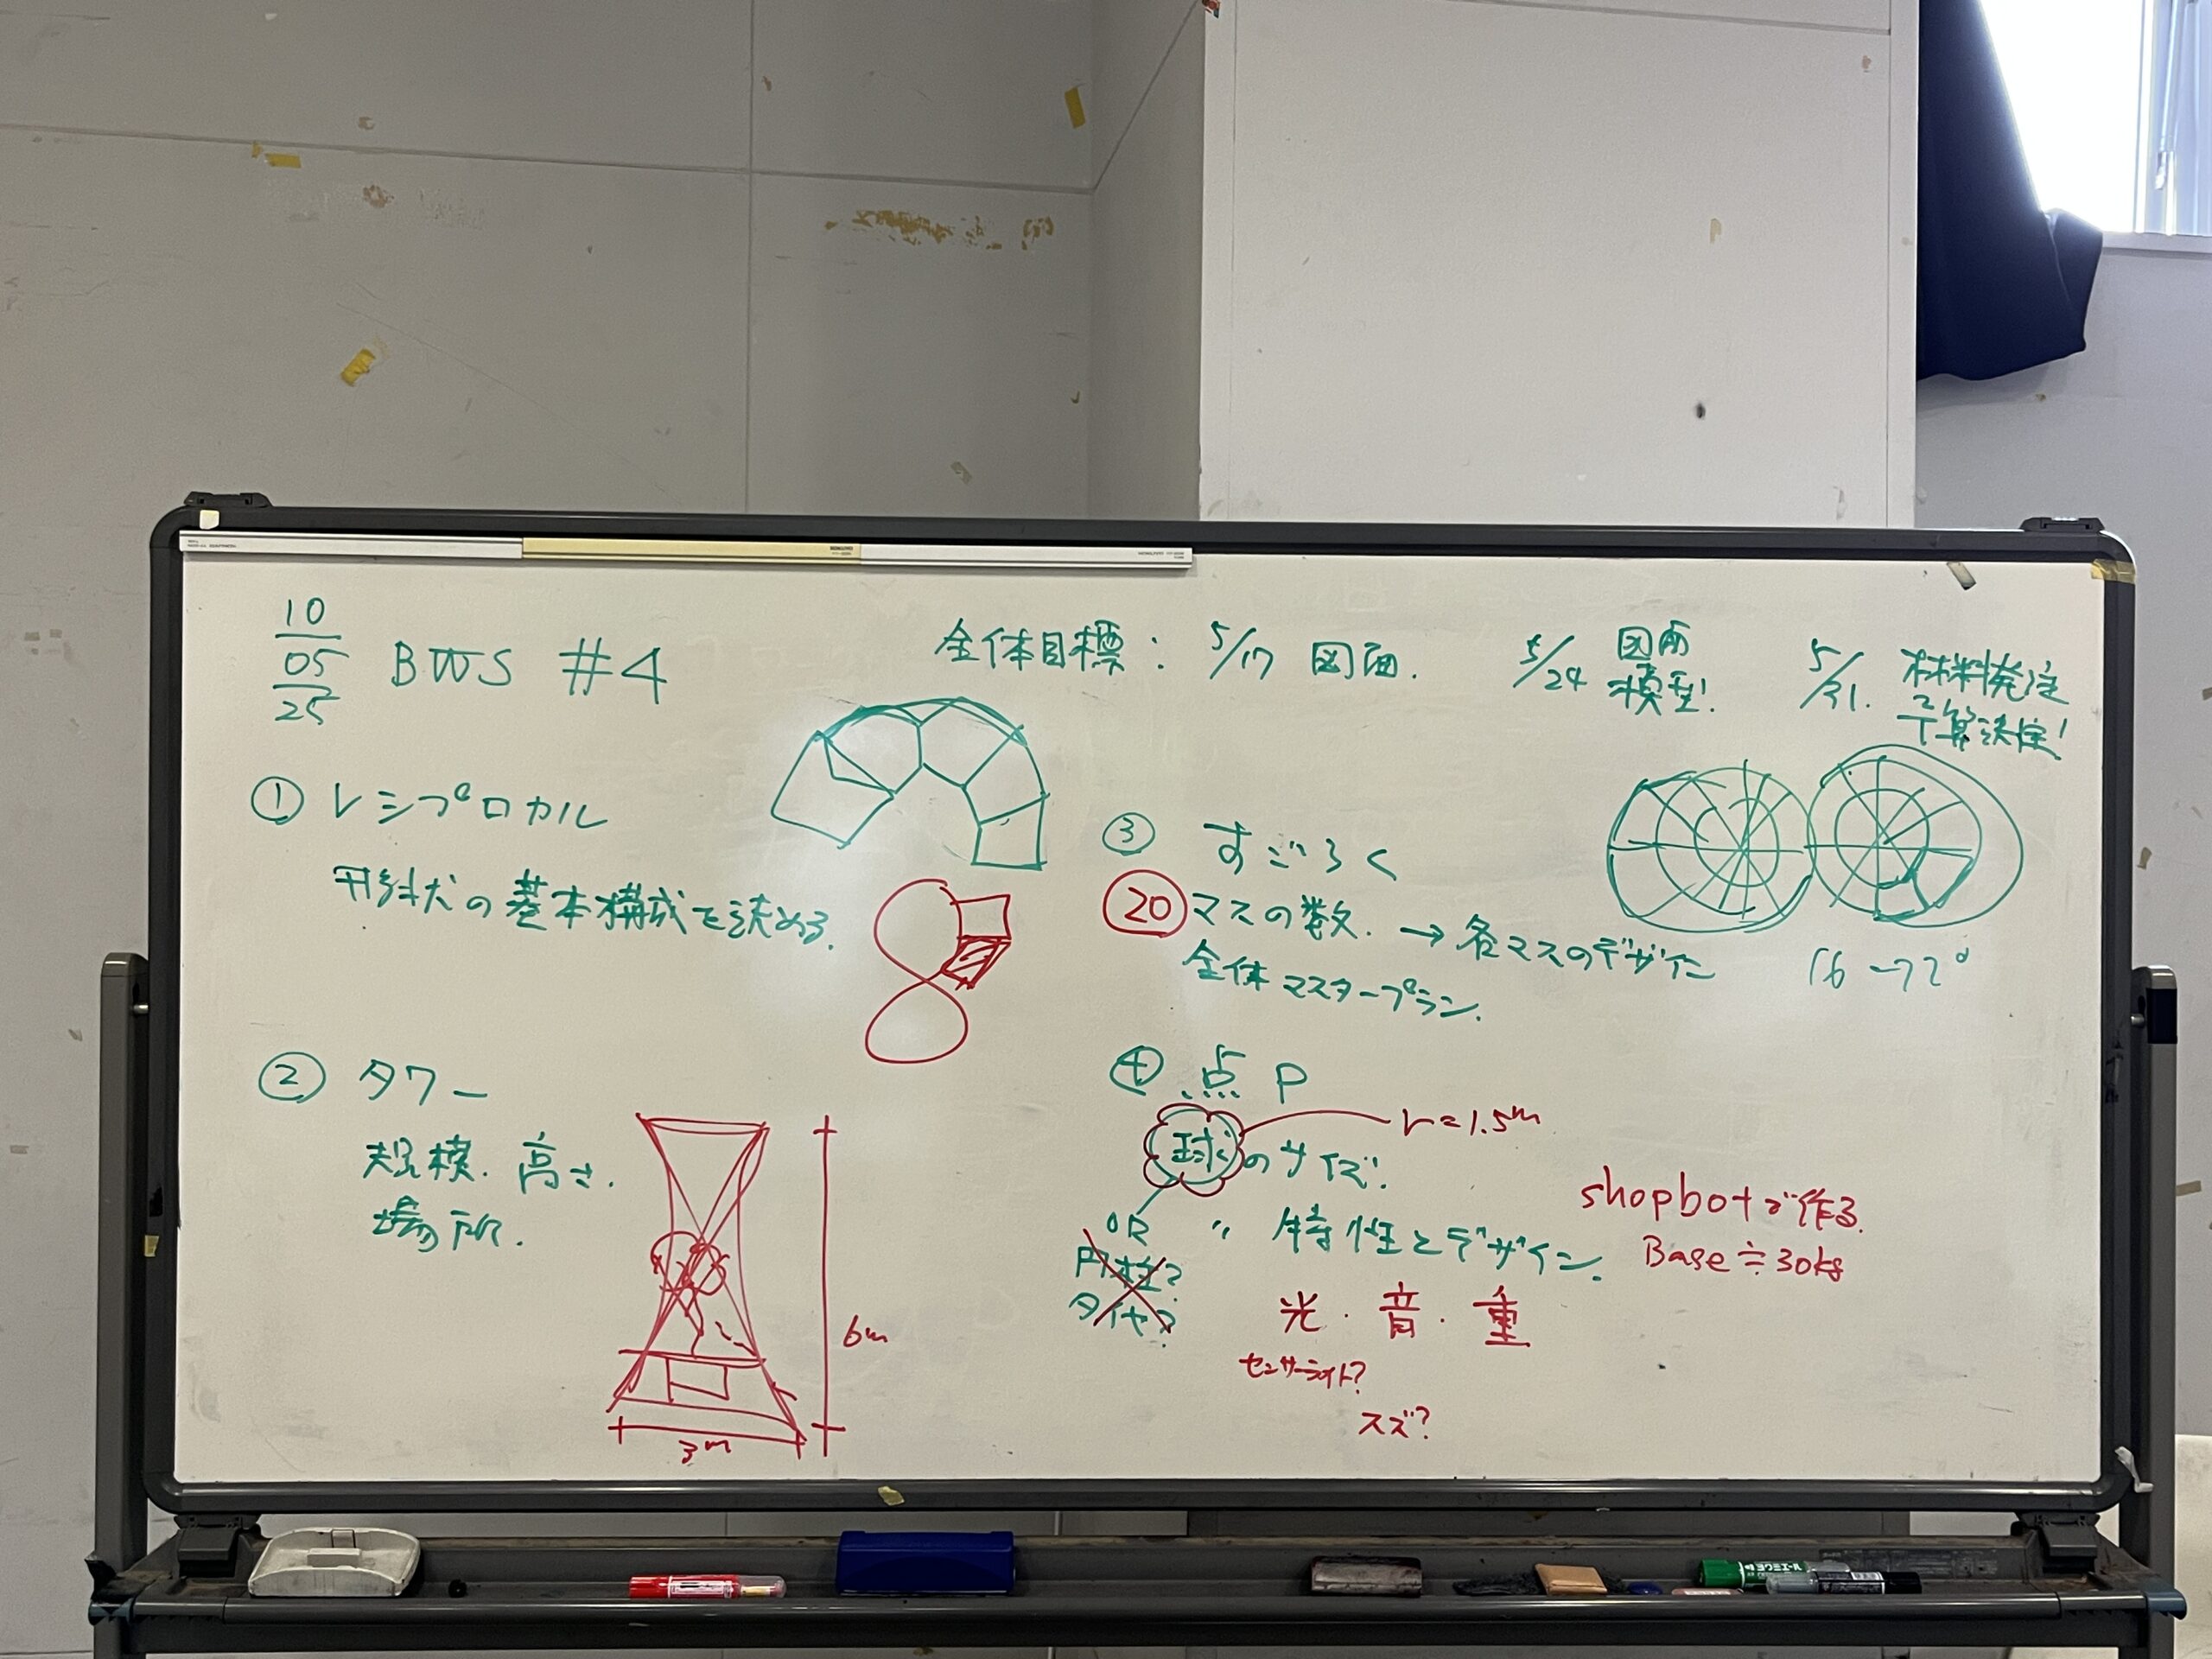 10
05
25
BWS #4
全体目標: 5/17 図面.
5/24 図面
模型!
5/31. 材料発注
予算決定!
① レシプロカル
形状の基本構成を決める.
② タワー
規模. 高さ.
場所.
6m
3m
③ すごろく
20 マスの数. → 各マスのデザイン
全体マスタープラン.
16 → 72°
④ 点P
球のサイズ!
r=1.5m
OR
円柱?
タイヤ?
〃 特性とデザイン.
光・音・重
センサーライト?
スズ?
shopbotで作る.
Base≒30kg
KOKUYO